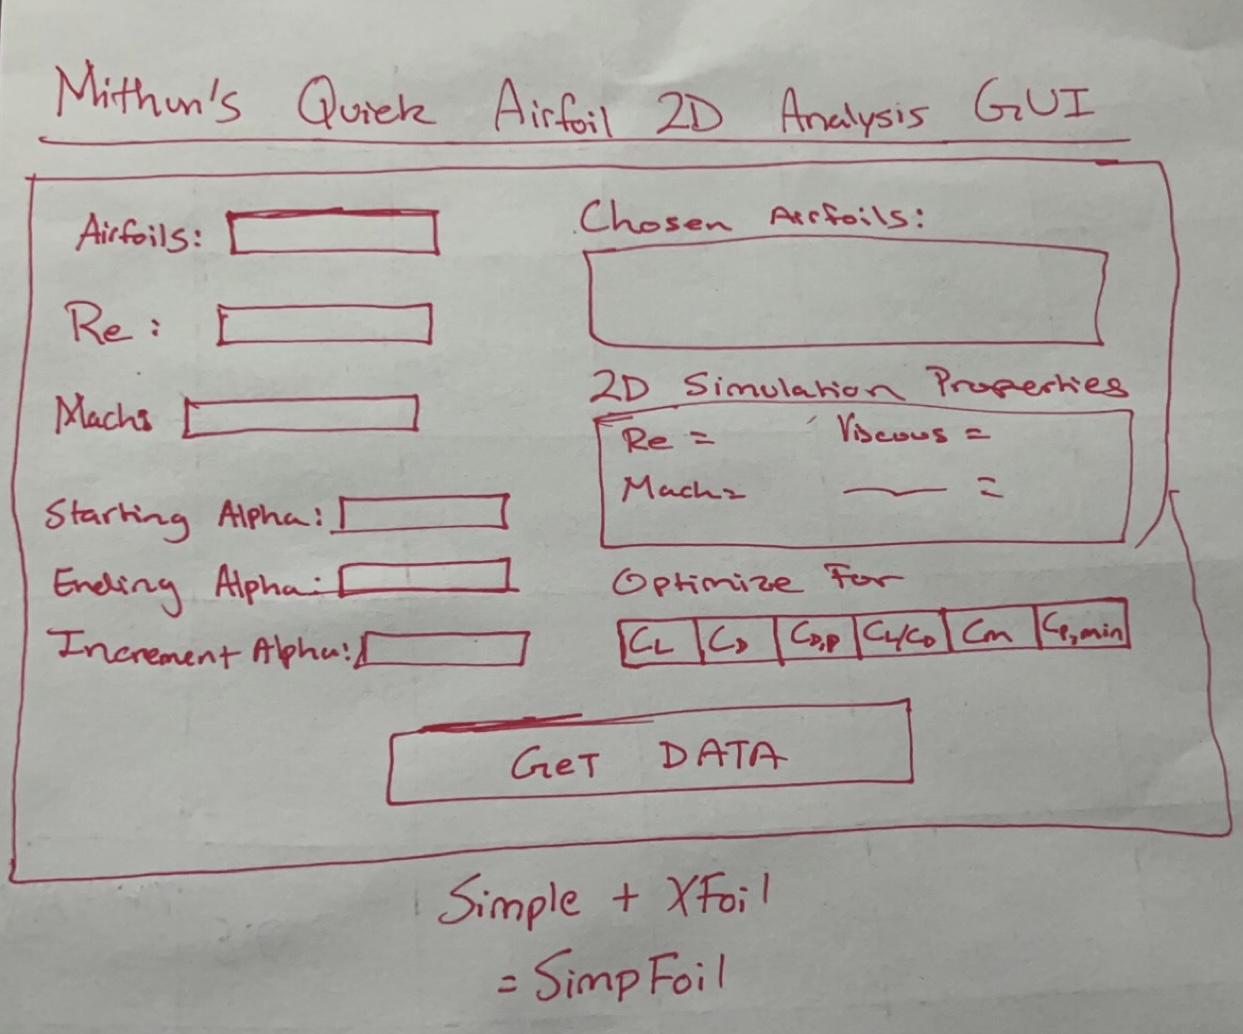 Mithun's Quick Airfoil 2D Analysis GUI
Airfoils:
Re:
Mach:
Starting Alpha:
Ending Alpha:
Increment Alpha:
Chosen Airfoils:
2D Simulation Properties
Re = Viscous =
Mach= =
Optimize For
CL CD CD,P CL/CD Cm CP,min
GET DATA
Simple + XFoil
= SimpFoil